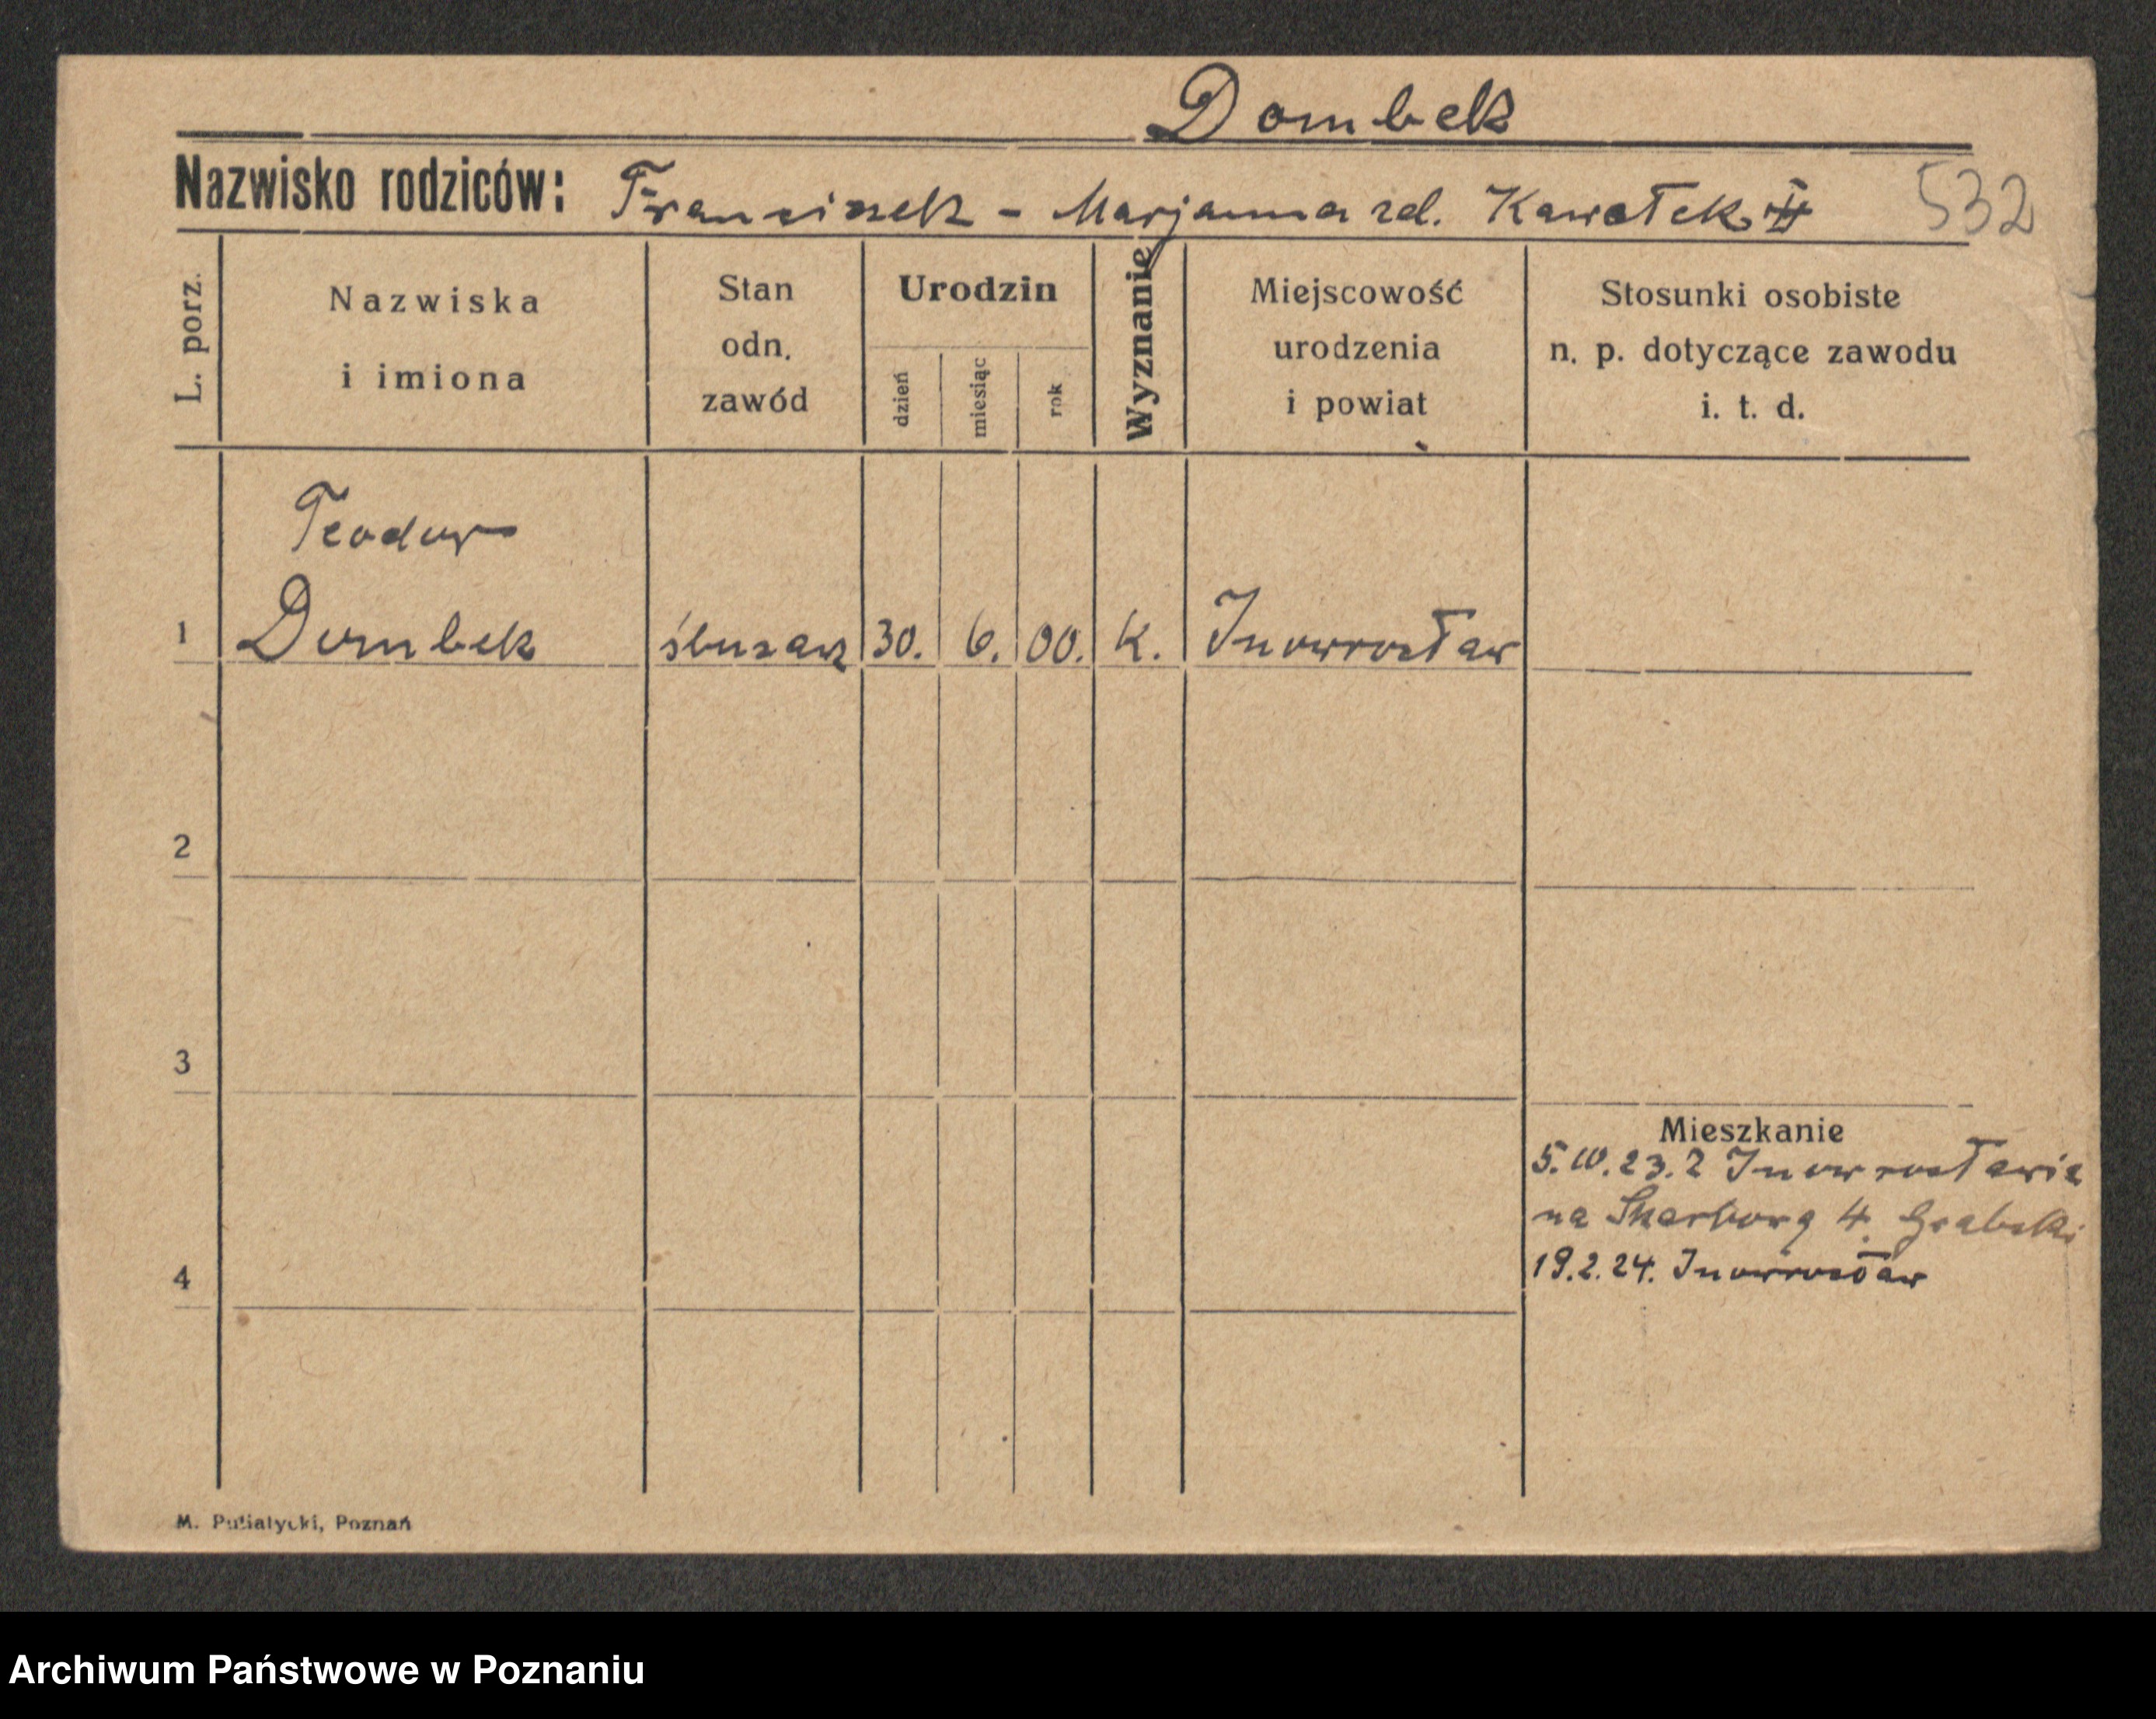 Dombek
Nazwisko rodziców: Franciszek - Marjanna zd. Kawałek 532
L. porz.
Nazwiska i imiona
Stan odn. zawód
Urodzin
dzień
miesiąc
rok
Wyznanie
Miejscowość urodzenia i powiat
Stosunki osobiste n. p. dotyczące zawodu i. t. d.
Teodor
1 Dombek ślusarz 30. 6. 00. K. Inowrocław
2
3
Mieszkanie
5. 10. 23. z Inowrocławia
na Skarbową 4. Grabski
4
19. 2. 24. Inowrocław
M. Putiatycki, Poznań
Archiwum Państwowe w Poznaniu